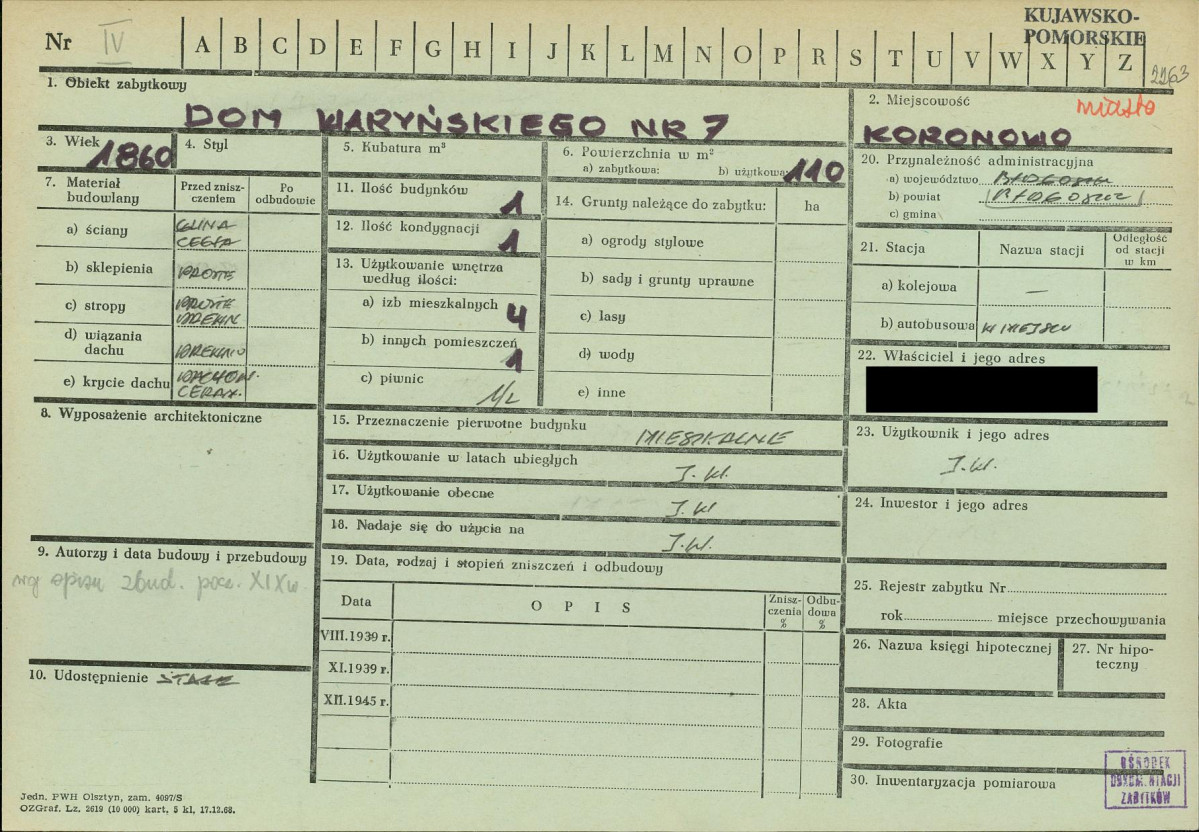 KUJAWSKO-
POMORSKIE
Nr IV A B C D E F G H I J K L M N O P R S T U V W X Y Z
2263
1. Obiekt zabytkowy
DOM WARYŃSKIEGO NR 7
2. Miejscowość miasto
KORONOWO
3. Wiek 1860
4. Styl
5. Kubatura m³
6. Powierzchnia w m²
a) zabytkowa: b) użytkowa: 110
7. Materiał budowlany
Przed zniszczeniem
Po odbudowie
a) ściany GLINA CEGŁA
b) sklepienia PROSTE
c) stropy PROSTE DREWN
d) wiązania dachu DREWNO
e) krycie dachu DACHÓW. CERAM.
8. Wyposażenie architektoniczne
9. Autorzy i data budowy i przebudowy
wg opisu zbud. pocz. XIX w.
10. Udostępnienie STAŁE
11. Ilość budynków 1
12. Ilość kondygnacji 1
13. Użytkowanie wnętrza
według ilości:
a) izb mieszkalnych 4
b) innych pomieszczeń 1
c) piwnic 1/2
14. Grunty należące do zabytku: ha
a) ogrody stylowe
b) sady i grunty uprawne
c) lasy
d) wody
e) inne
15. Przeznaczenie pierwotne budynku MIESZKALNE
16. Użytkowanie w latach ubiegłych J.W.
17. Użytkowanie obecne J.W
18. Nadaje się do użycia na J.W.
19. Data, rodzaj i stopień zniszczeń i odbudowy
Data
OPIS
Zniszczenia %
Odbudowa %
VIII.1939 r.
XI.1939 r.
XII.1945 r.
20. Przynależność administracyjna
a) województwo BYDGOSZCZ
b) powiat BYDGOSZCZ
c) gmina
21. Stacja
Nazwa stacji
Odległość od stacji w km
a) kolejowa —
b) autobusowa W MIEJSCU
22. Właściciel i jego adres
23. Użytkownik i jego adres
J.W.
24. Inwestor i jego adres
25. Rejestr zabytku Nr
rok miejsce przechowywania
26. Nazwa księgi hipotecznej
27. Nr hipoteczny
28. Akta
29. Fotografie
30. Inwentaryzacja pomiarowa
OŚRODEK
DOKUMENTACJI
ZABYTKÓW
Jedn. PWH Olsztyn, zam. 4097/S
OZGraf. Lz. 2619 (10 000) kart. 5 kl, 17.12.68.